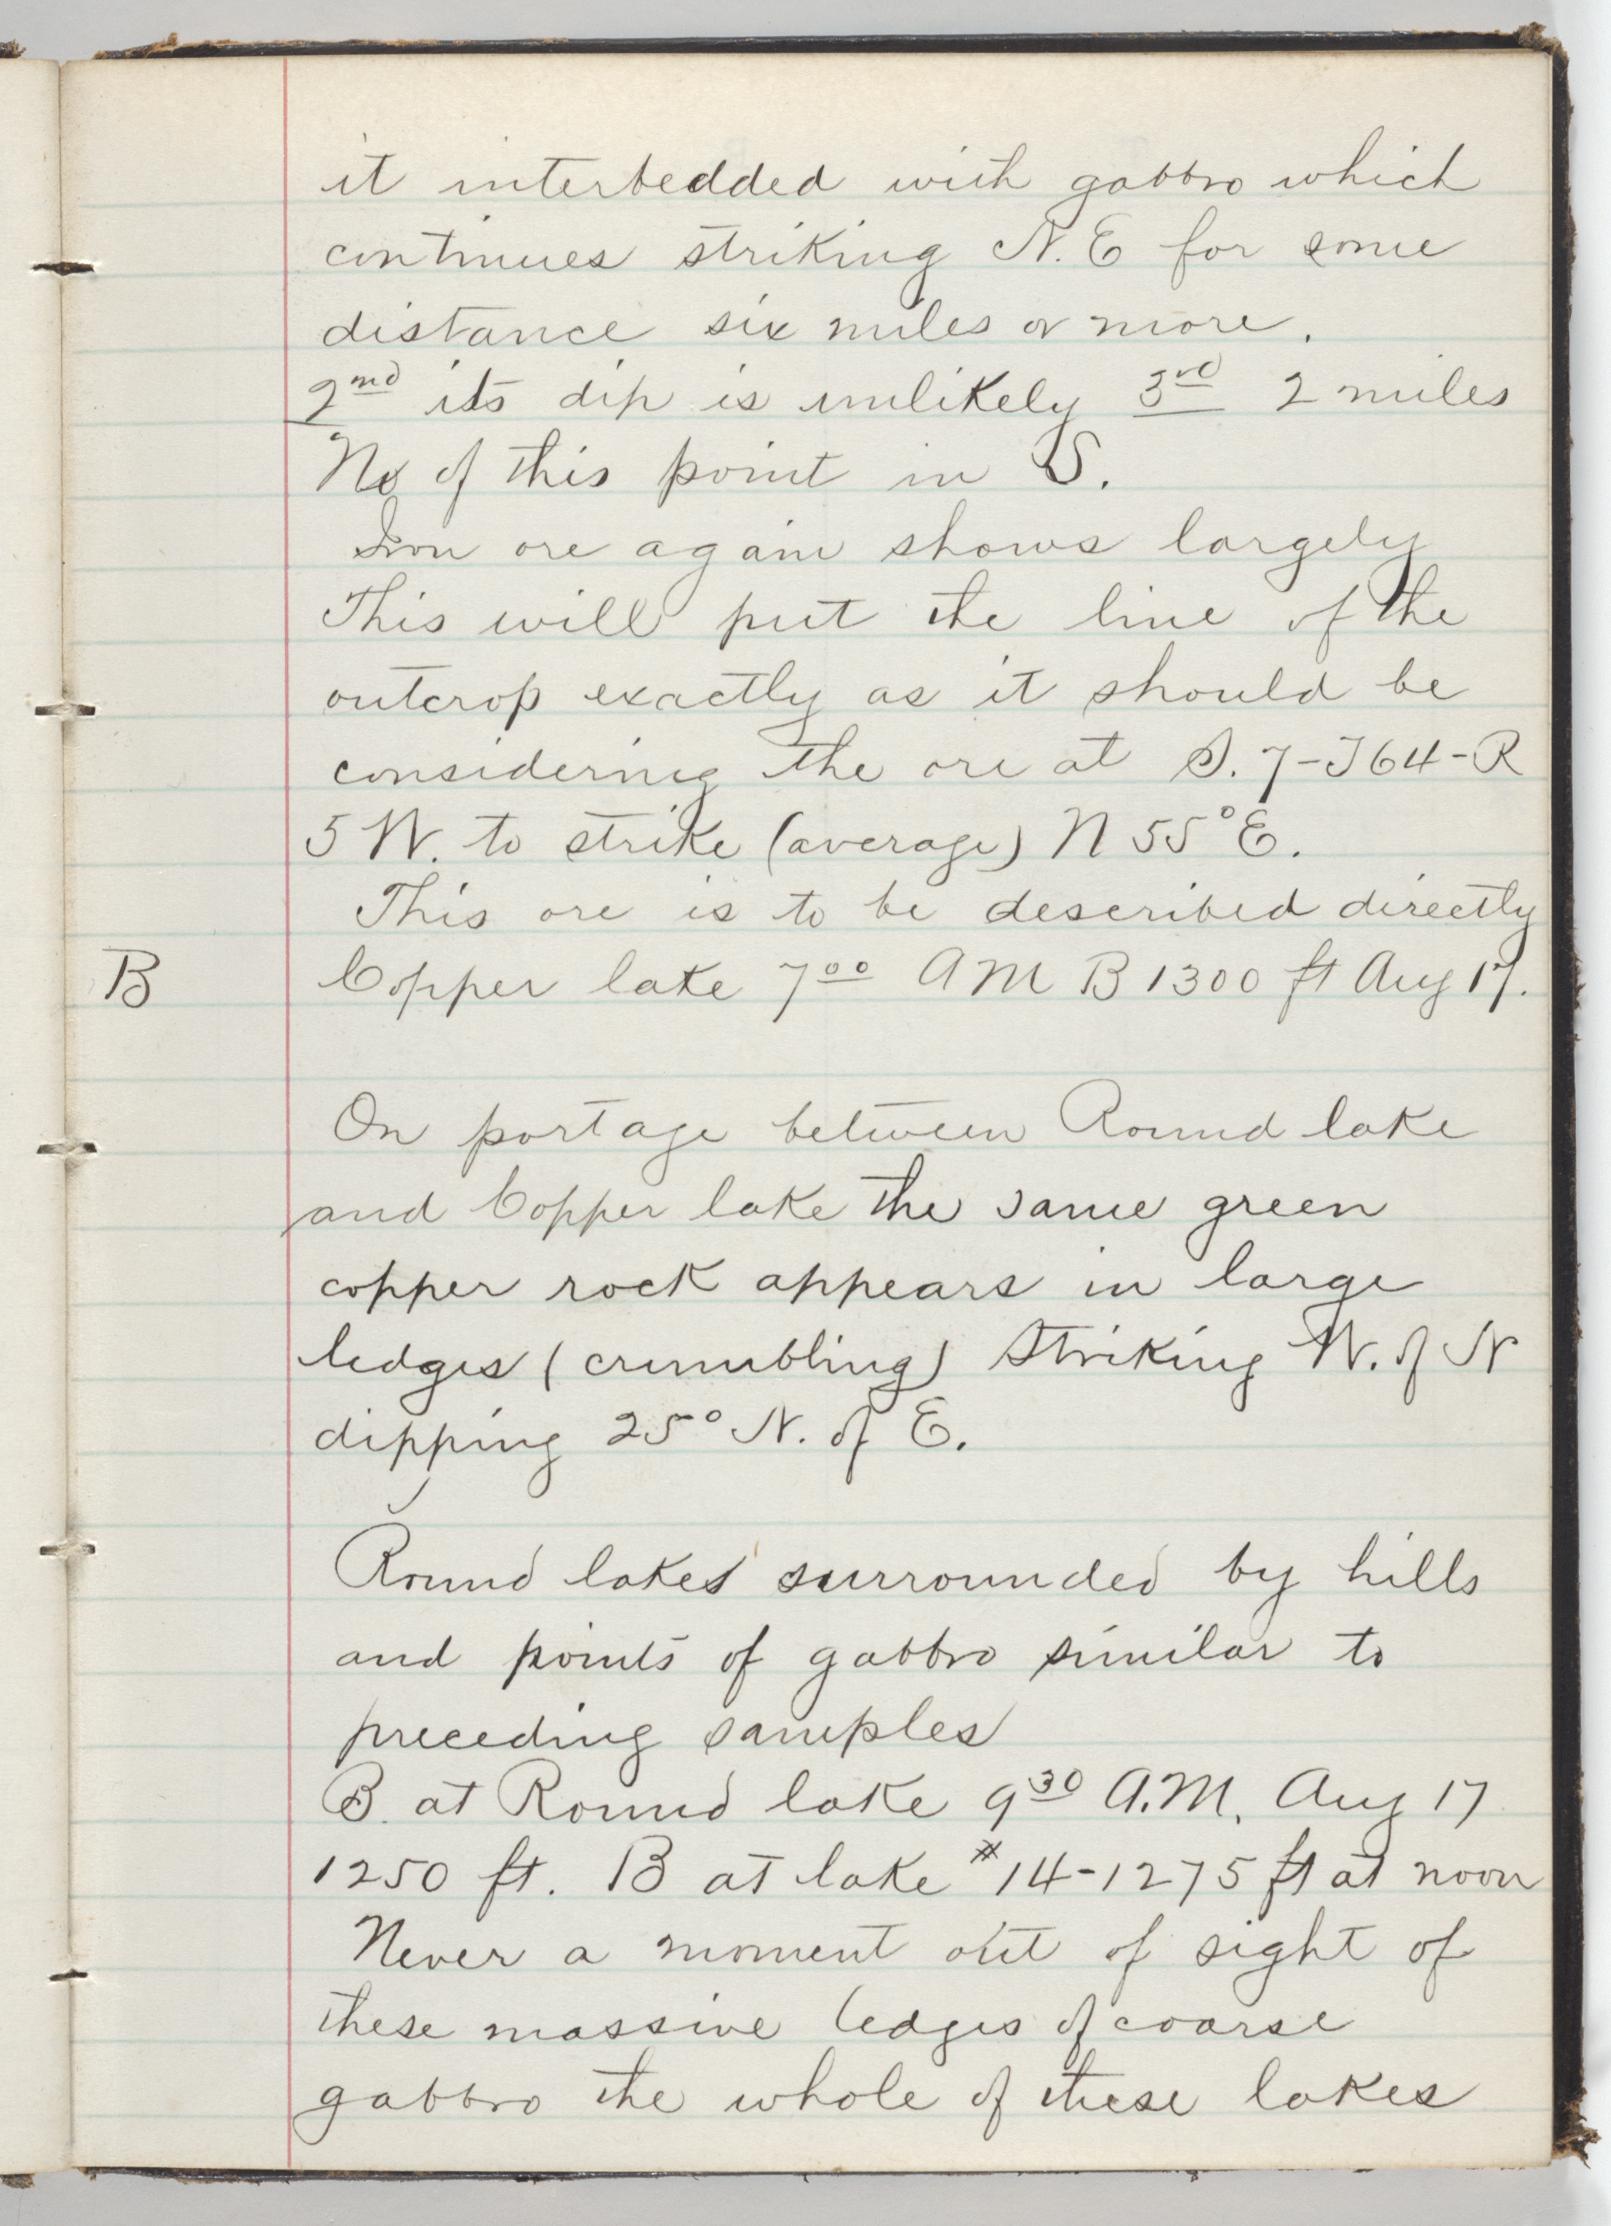 it interbedded with gabbro which
continues striking N.E for some
distance six miles or more.
2nd its dip is unlikely 3rd 2 miles
No of this point in S.
Iron ore again shows largely
This will put the line of the
outcrop exactly as it should be
considering the ore at S. 7-T64-R
5 W. to strike (average) N 55° E.
This ore is to be described directly
B Copper lake 700 A M B 1300 ft Aug 17.
On portage between Round lake
and Copper lake the same green
copper rock appears in large
ledges (crumbling) striking W. of N
dipping 25° N. of E.
Round lakes surrounded by hills
and points of gabbro similar to
preceding samples
B. at Round lake 930 A.M. Aug 17
1250 ft. B at lake #14-1275 ft at noon
Never a moment out of sight of
these massive ledges of coarse
gabbro the whole of these lakes